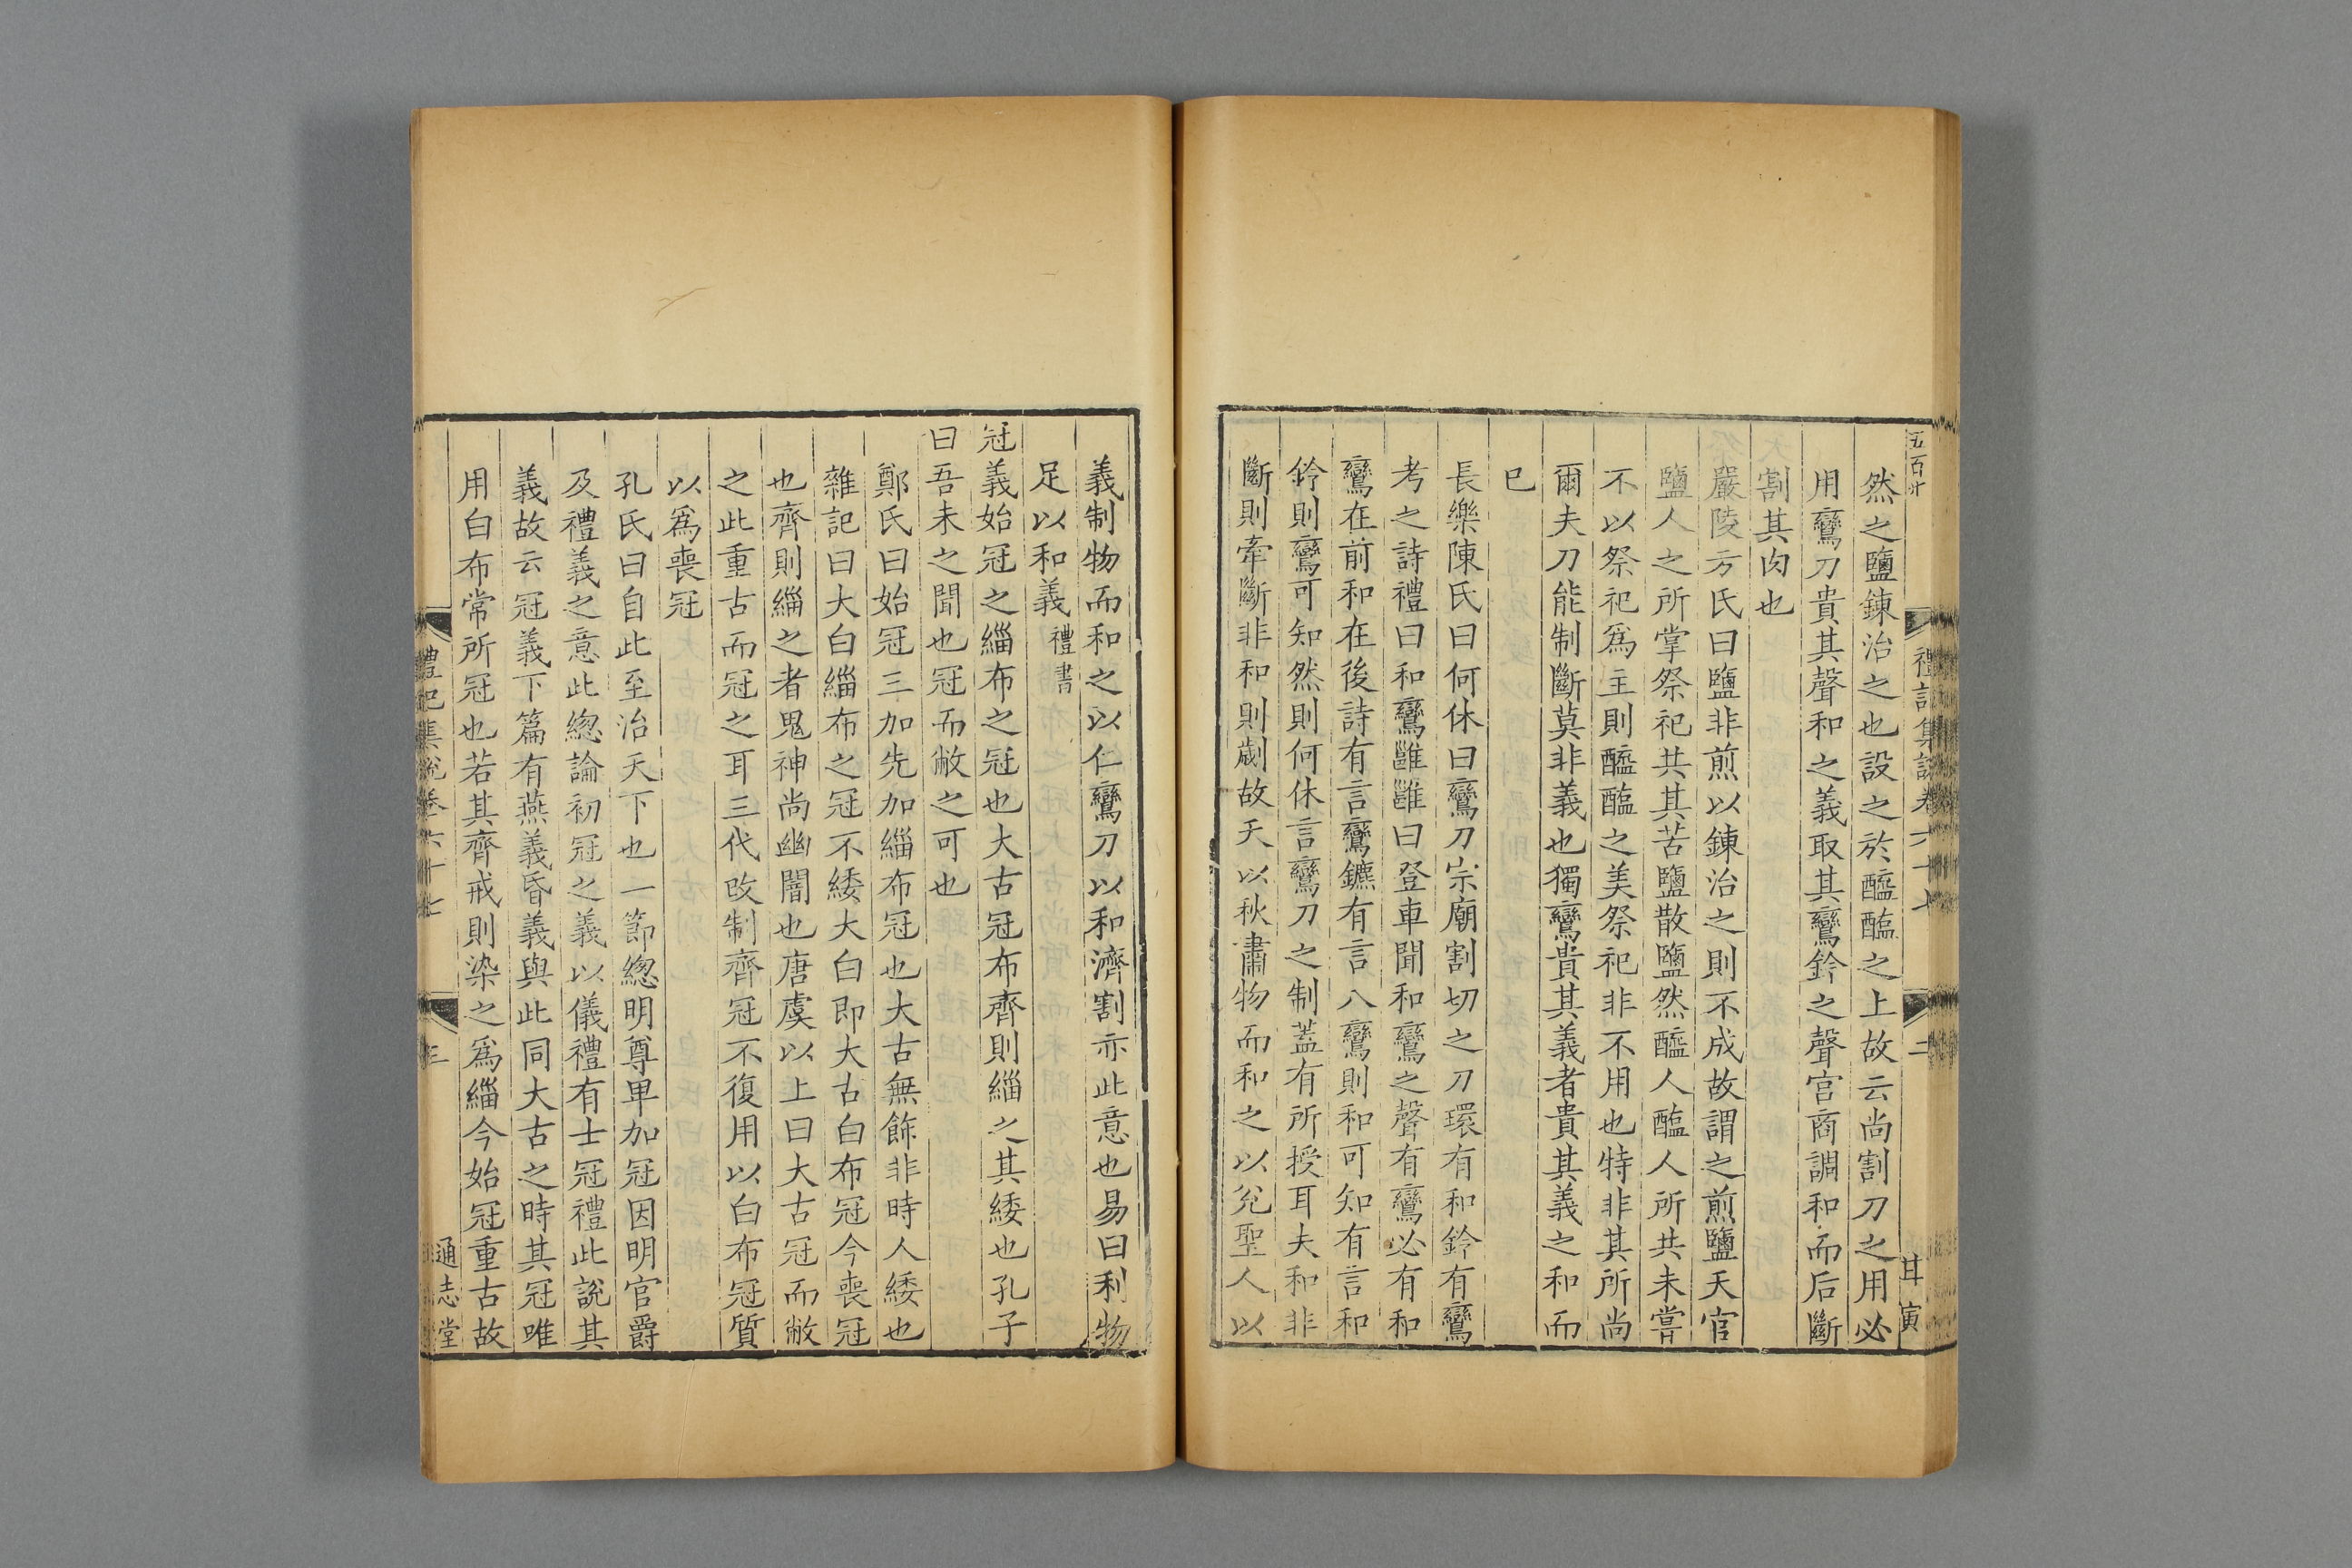 五百廿
禮記集說卷六十七
二
甘寅
然之鹽鍊治之也設之於醯醢之上故云尚割刀之用必
用鸞刀貴其聲和之義取其鸞鈴之聲宮商調和而后斷
割其肉也
嚴陵方氏曰鹽非煎以鍊治之則不成故謂之煎鹽天官
鹽人之所掌祭祀共其苦鹽散鹽然醯人醢人所共未嘗
不以祭祀爲主則醯醢之美祭祀非不用也特非其所尚
爾夫刀能制斷莫非義也獨鸞貴其義者貴其義之和而
巳
長樂陳氏曰何休曰鸞刀宗廟割切之刀環有和鈴有鸞
考之詩禮曰和鸞雝雝曰登車聞和鸞之聲有鸞必有和
鸞在前和在後詩有言鸞鑣有言八鸞則和可知有言和
鈴則鸞可知然則何休言鸞刀之制蓋有所授耳夫和非
斷則牽斷非和則劌故天以秋肅物而和之以兊聖人以
義制物而和之以仁鸞刀以和濟割亦此意也易曰利物
足以和義禮書
冠義始冠之緇布之冠也大古冠布齊則緇之其緌也孔子
曰吾未之聞也冠而敝之可也
鄭氏曰始冠三加先加緇布冠也大古無飾非時人緌也
雜記曰大白緇布之冠不緌大白即大古白布冠今喪冠
也齊則緇之者鬼神尚幽闇也唐虞以上曰大古冠而敝
之此重古而冠之耳三代改制齊冠不復用以白布冠質
以爲喪冠
孔氏曰自此至治天下也一節緫明尊卑加冠因明官爵
及禮義之意此緫論初冠之義以儀禮有士冠禮此說其
義故云冠義下篇有燕義昏義與此同大古之時其冠唯
用白布常所冠也若其齊戒則染之爲緇今始冠重古故
禮記集說卷六十七
三
通志堂